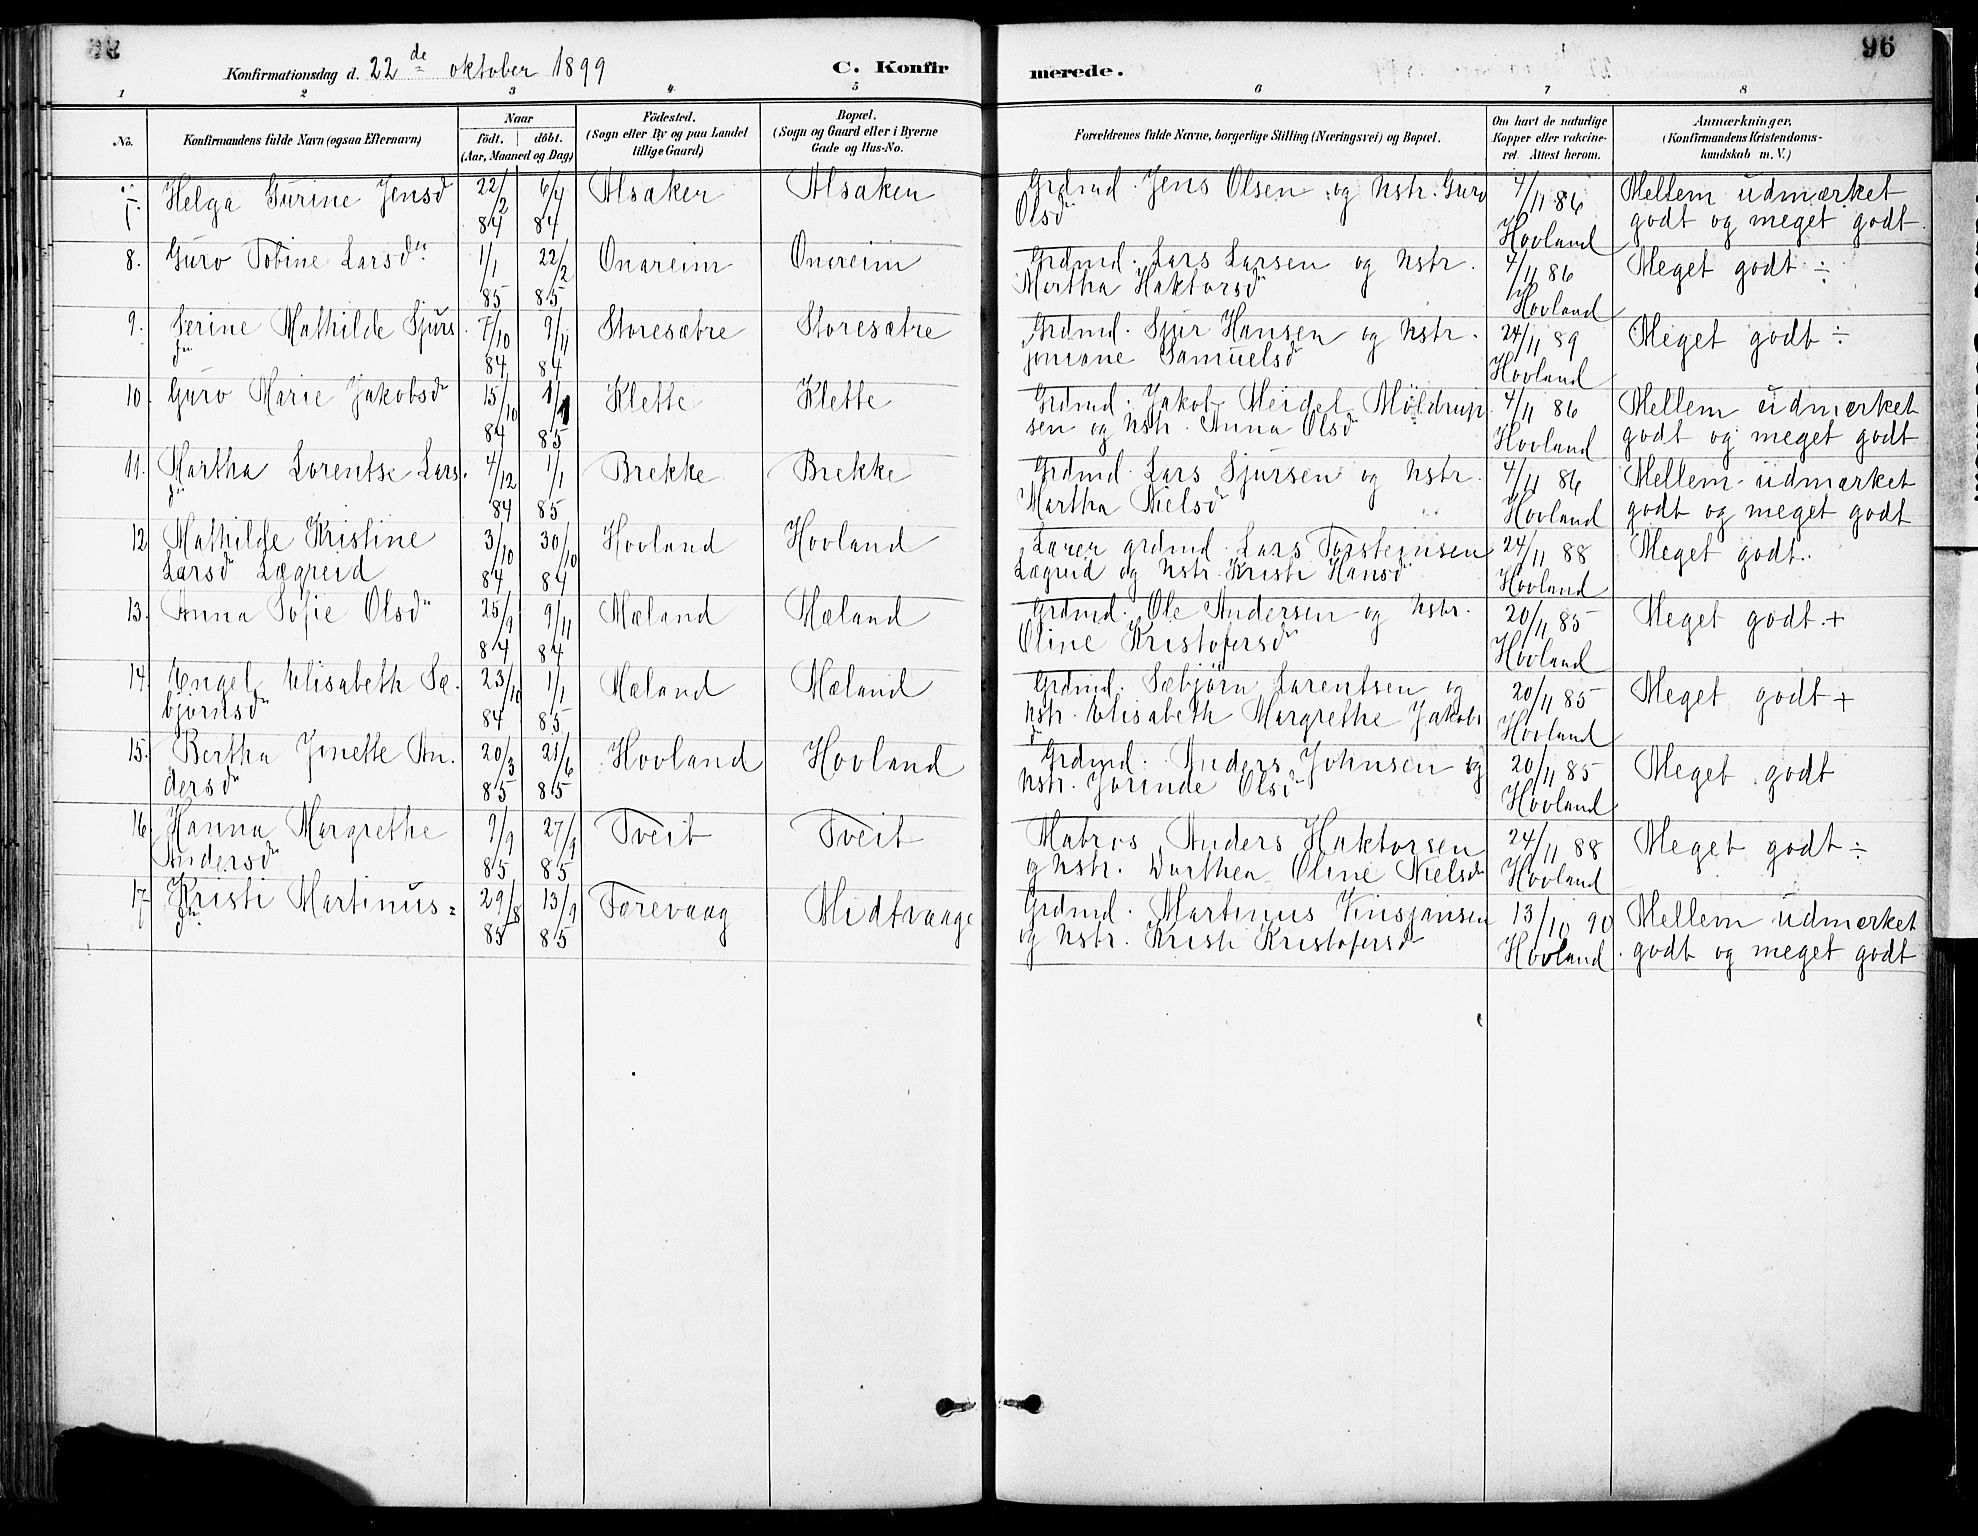 96
Konfirmationsdag d. 22de oktober 1899
C. Konfir
merede.
1 2 3 4 5 6 7 8
No.
Konfirmandens fulde Navn (ogsaa Efternavn)
Naar
födt. döbt.
(Aar, Maaned og Dag)
Födested.
(Sogn eller By og paa Landet
tillige Gaard)
Bopæl.
(Sogn og Gaard eller i Byerne
Gade og Hus-No.
Forældrenes fulde Navne, borgerlige Stilling (Næringsvei) og Bopæl.
Om havt de naturlige
Kopper eller vakcine-
ret. Attest herom.
Anmærkninger,
(Konfirmandens Kristendoms-
kundskab m. V.)
Helga Gurine Jensd 22/2 84 6/4 84 Alsaker Alsaker Grdmd. Jens Olsen og Hstr. Guro 4/11 86 Mellem udmærket
Olsd Hovland godt og meget godt
8. Guro Tobine Larsdtr 1/1 85 22/2 85 Onareim Onareim Grdmd. Lars Larsen og Hstr. 4/11 86 Meget godt ÷
Martha Haktorsd Hovland
9. Serine Mathilde Sjurs 7/10 84 9/11 84 Storesætre Storesætre Grdmd. Sjur Hansen og Hstr. 24/11 89 Meget godt ÷
dtr Joniane Samuelsd Hovland
10. Guro Marie Jakobsd 15/10 84 1/1 85 Klette Klette Grdmd. Jakob Meidel Möldrup 4/11 86 Mellem udmerket
sen og Hstr. Anna Olsd Hovland godt og meget godt
11. Martha Lorentse Lars. 4/12 84 1/1 85 Brekke Brekke Grdmd. Lars Sjursen og Hstr. 4/11 86 Mellem udmærket
dtr Martha Nielsd Hovland godt og meget godt
12 Mathilde Kristine 3/10 84 30/10 84 Hovland Hovland Lærer grdmd. Lars Torsteinsen 24/11 88 Meget godt.
Larsd Lægreid Lægreid og Hstr. Kristi Hansd Hovland
13. Anna Sofie Olsd 25/9 84 9/11 84 Mæland Mæland Grdmd. Ole Andersen og Hstr. 20/11 85 Meget godt. +
Oline Kristofersd Hovland
14. Engel Elisabeth Sæ. 23/10 84 1/1 85 Mæland Mæland Grdmd. Sæbjørn Larentsen og 20/11 85 Meget godt +
björnsd Hstr. Elisabeth Margrethe Jakobs Hovland
d
15. Bertha Jinette An. 20/3 85 21/6 85 Hovland Hovland Grdmd. Anders Johnsen og 20/11 85 Meget godt
dersd Hstr. Jorinde Olsd Hovland
16 Hanna Margrethe 9/9 85 27/9 85 Tveit Tveit Matros Anders Haktorsen 24/11 88 Meget godt ÷
Andersd og Hstr. Dorthea Oline Nielsd Hovland
17 Kristi Martinus= 29/8 85 13/9 85 Torevaag Midtvaage Grdmd. Martinus Vinsjansen 13/10 90 Mellem udmerket
dtr og Hstr. Kristi Kristofersd Hovland. godt og meget godt